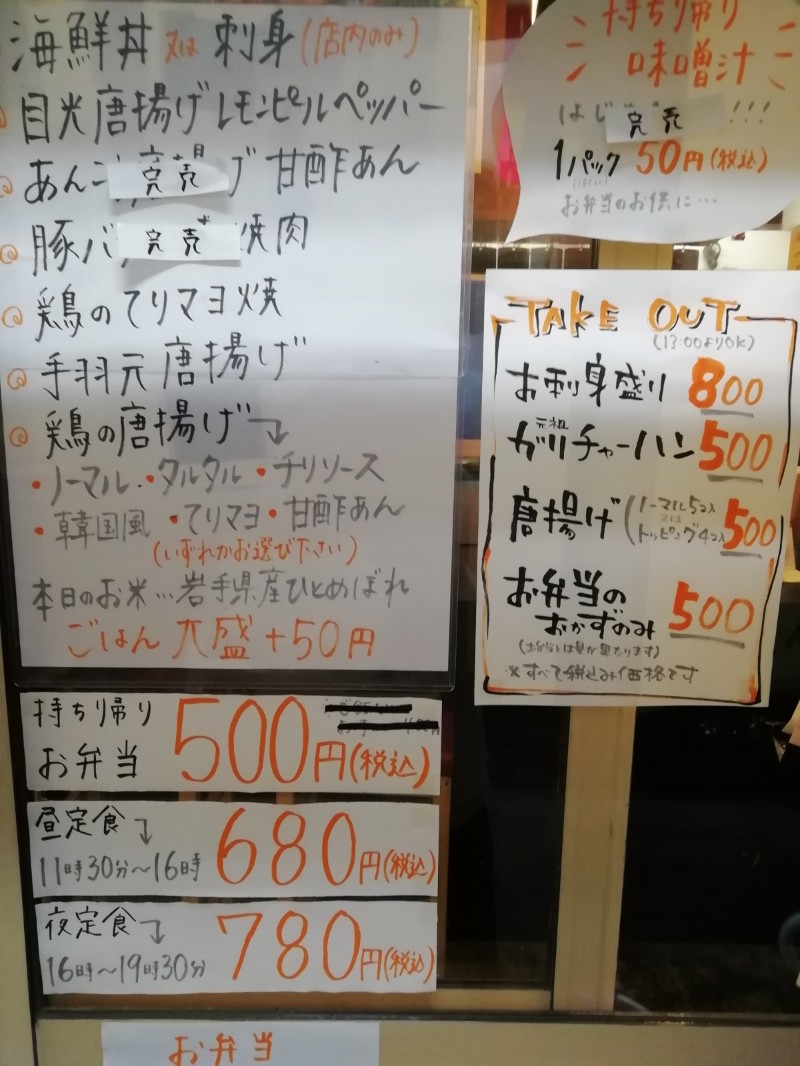 海鮮丼 又は 刺身 (店内のみ)
目光唐揚げレモンピールペッパー
あんこ 完売 げ 甘酢あん
豚バ 完売 焼肉
鶏のてりマヨ焼
手羽元唐揚げ
鶏の唐揚げ
・ノーマル・タルタル・チリソース
・韓国風 ・てりマヨ・甘酢あん
(いずれかお選び下さい)
本日のお米…岩手県産ひとめぼれ
ごはん 大盛+50円
持ち帰り
お弁当 500円(税込)
昼定食
11時30分〜16時 680円(税込)
夜定食
16時〜19時30分 780円(税込)
お弁当
持ち帰り
味噌汁
はじ 完売 !!!
1パック 50円(税込)
お弁当のお供に…
TAKE OUT
(13:00よりOK)
お刺身盛り 800
元祖
ガリチャーハン 500
唐揚げ (ノーマル5コ入 又は トッピング4コ入 500
お弁当の
おかずのみ 500
(お弁当とは量が異なります)
※すべて税込み価格です